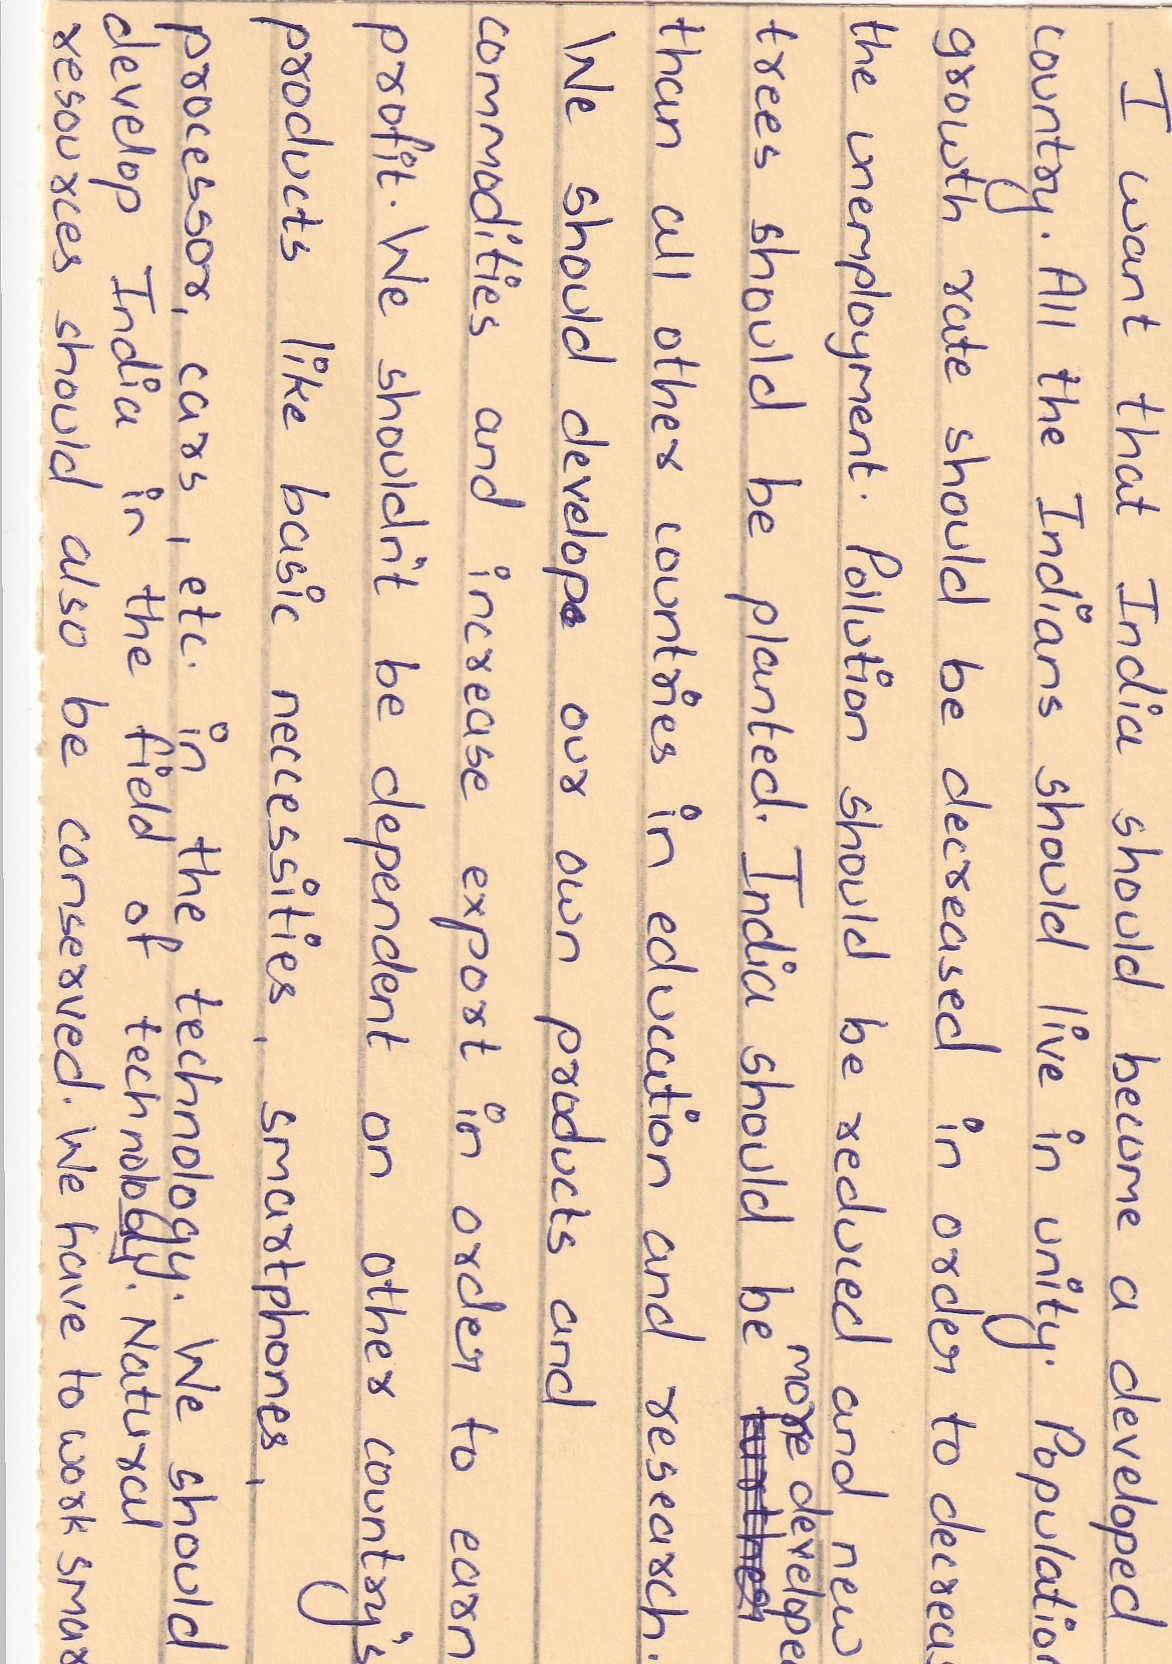 I want that India should become a developed
country. All the Indians should live in unity. Populatio
growth rate should be decreased in order to decreas
the unemployment. Pollution should be reduced and new
trees should be planted. India should be more develope
than all other countries in education and research.
We should develop our own products and
commodities and increase export in order to earn
profit. We shouldn't be dependent on other country's
products like basic neccessities, smartphones,
processor, cars, etc. in the technology. We should
develop India in the field of technology. Natural
resources should also be conserved. We have to work smar